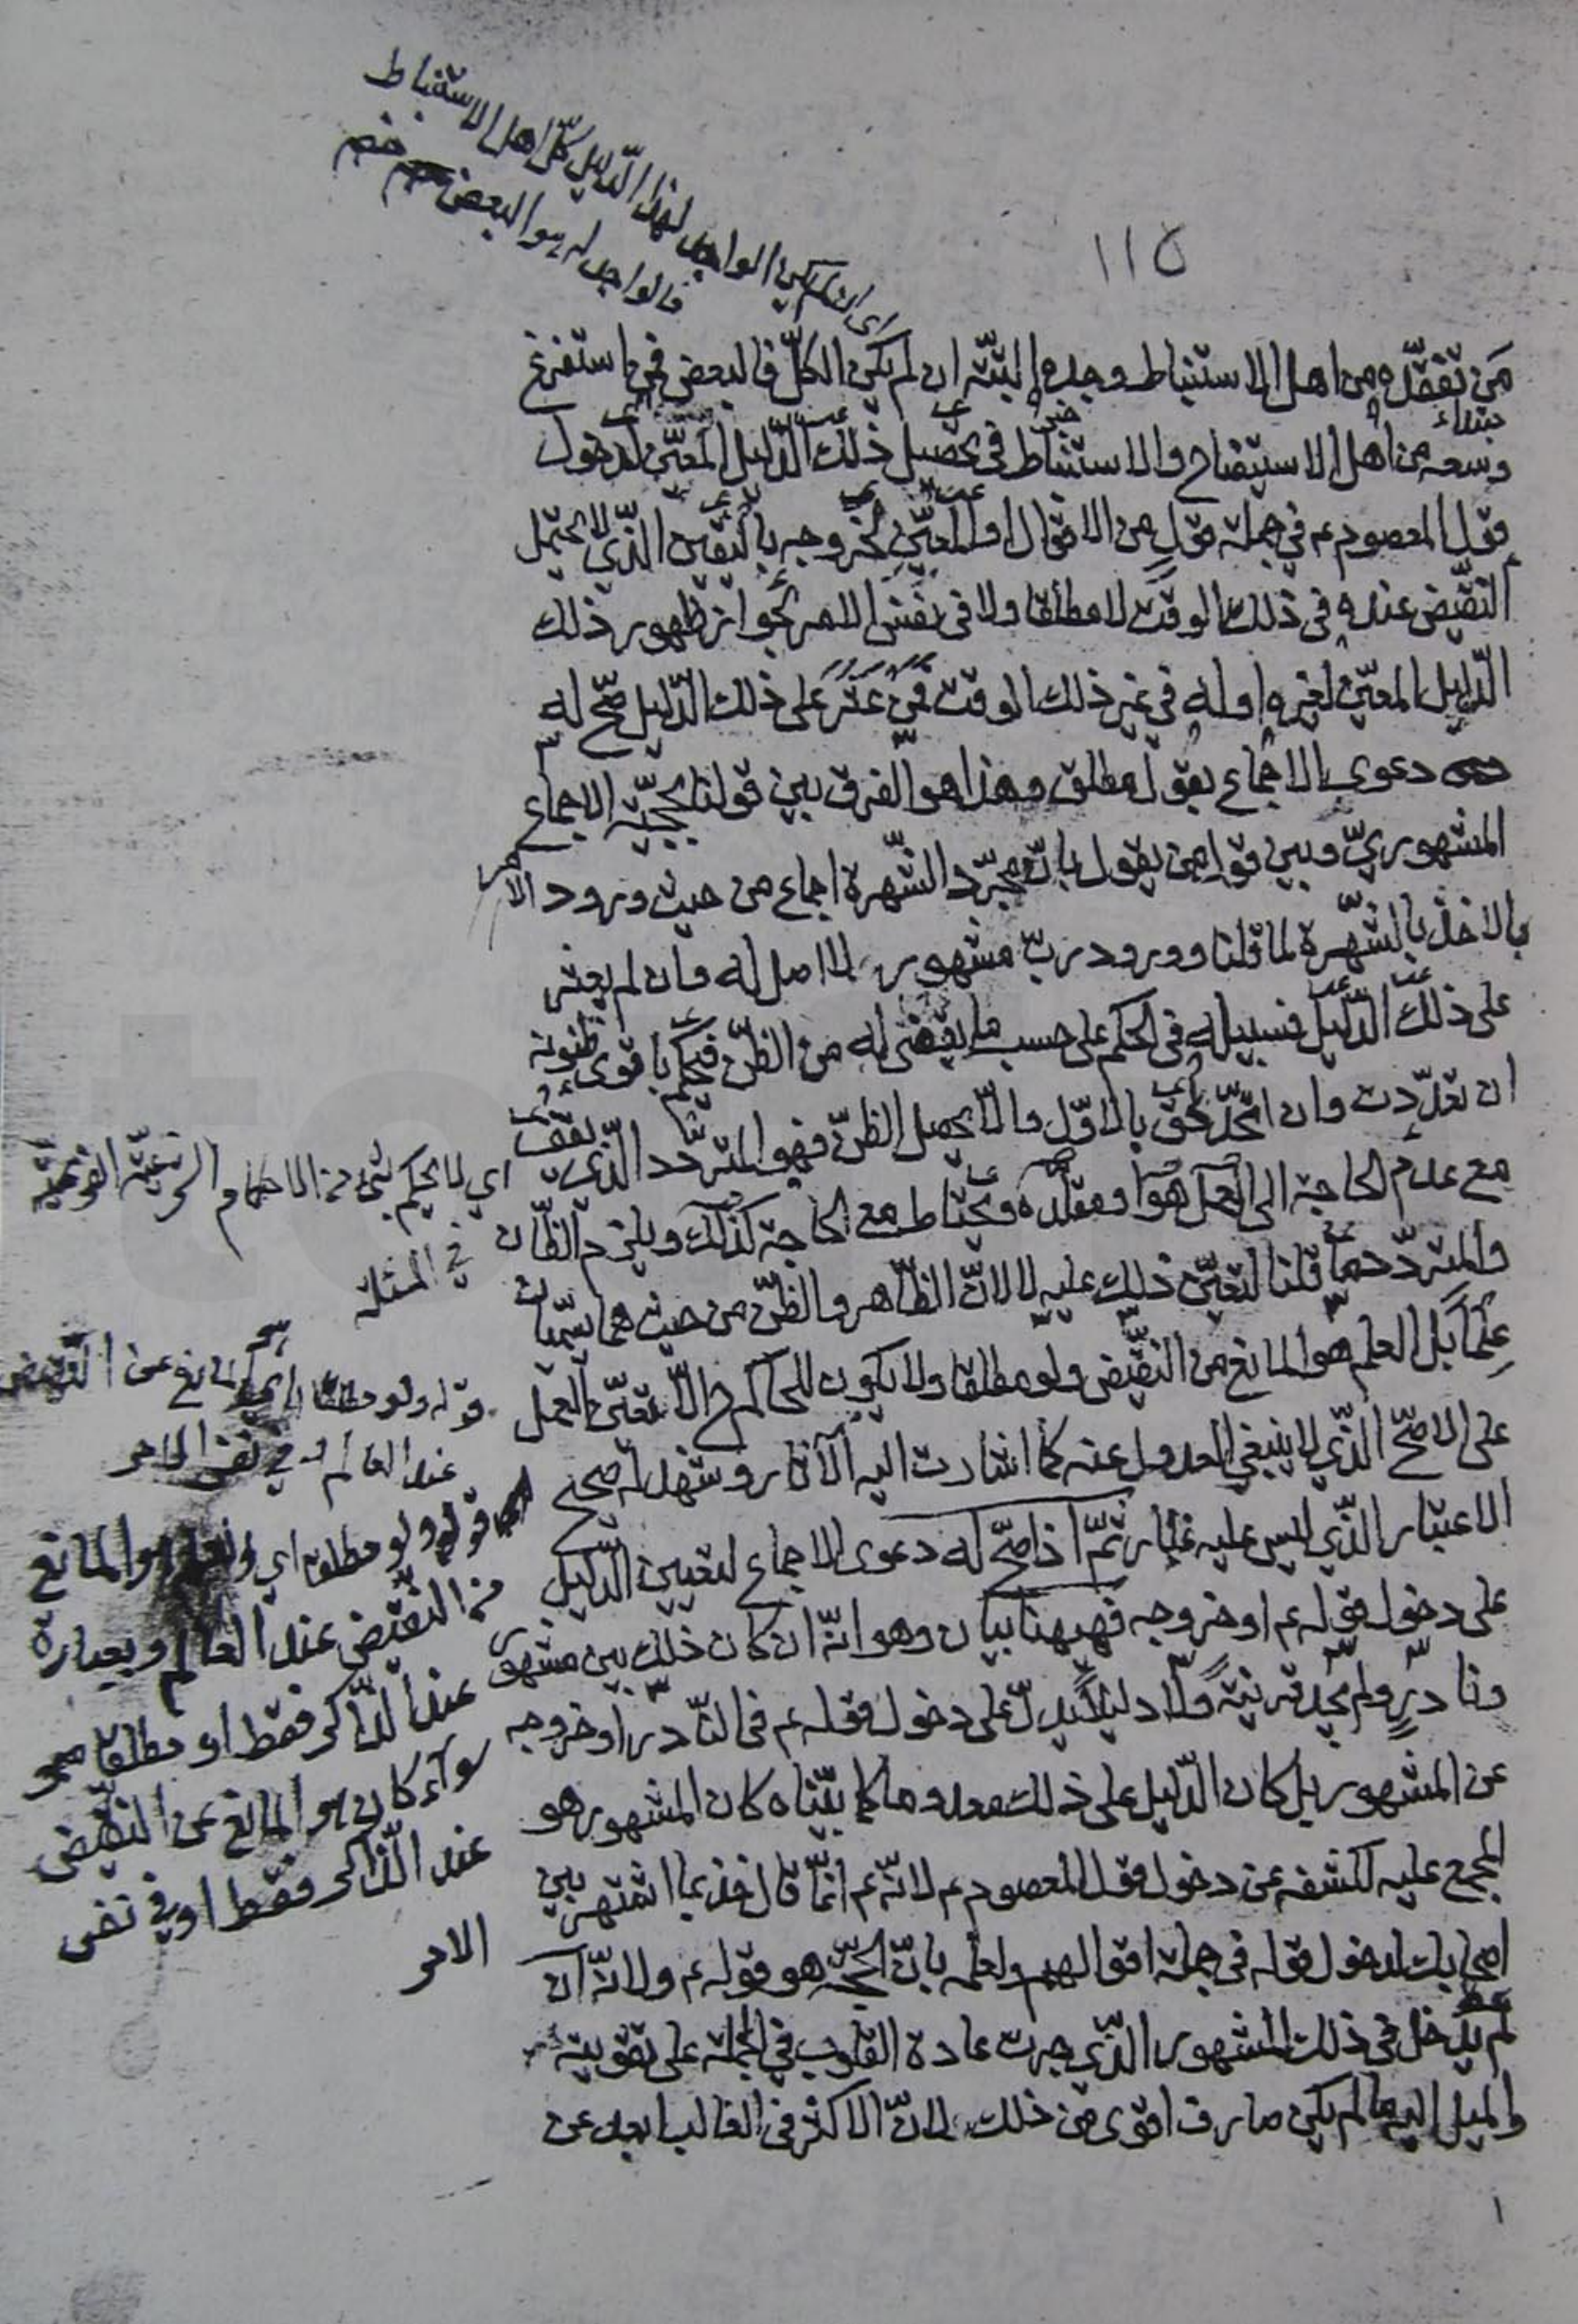 اى ان لم يكن الواجد لهذا الدّليل كلّ اهل الاستنباط
فالواجد له هو البعض منهم
١١٥
من تفقّده من اهل الاستنباط وجده البتّة ان لم يكن الكلّ فالبعض فمن استفرغ
وسعه من اهل الاستيضاح والاستنباط فى تحصيل ذلك الدّليل المعيّن لدخول
قول المعصوم ع في جملة قولٍ من الاقوال او المعيّن لخروجه باليقين الّذي لا يحتمل
النقيض عنده فى ذلك الوقت لا مطلقا ولا فى نفس الامر لجواز ظهور ذلك
الدّليل المعيّن لغيره او له في غير ذلك الوقت فمن عثر على ذلك الدّليل صحّ له
دعوى الاجماع بقول مطلق وهذا هو الفرق بين قولنا بحجيّة الاجماع
المشهوريّ وبين قول من يقول بانّ مجرّد الشّهرة اجماع من حيث ورود الامر
بالاخذ بالشّهرة لما قلنا وورود ربّ مشهور لا اصل له وان لم يعثر
على ذلك الدّليل فسبيله فى الحكم على حسب ما يقتضى له من الظنّ فيحكم باقوى ظنونه
ان تعدّدت وان اتّحد لحق بالاوّل والّا يحصل الظنّ فهو المتردّد الّذي يقف
مع عدم الحاجة الى العمل هو او مقلّده ويحتاط مع الحاجة كذلك ويلزم الظّانّ
والمتردّد ما قلنا لتعيّن ذلك عليه لا لانّ الظّاهر والظنّ من حيث هما يسمّيان
عِلمًا بل العلم هو المانع من النقيض ولو مطلقا ولا يكون للحاكم ح الّا تعيّن العمل
على الاصّح الّذي لا ينبغي العدول عنه كما اشارت اليه الآثار وشهد له صحيح
الاعتبار الّذي ليس عليه غبار ثمّ اذا صحّ له دعوى الاجماع لتعيين الدّليل
على دخول قوله ع او خروجه فهيهنا بيان وهو انّه ان كان ذلك بين مشهور
ونادرٍ ولم يجد قرينةً ولا دليلًا يدلّ على دخول قوله ع فى النّادر او خروجه
عن المشهور بل كان الدّليل على ذلك معدوما كما بيّناه كان المشهور هو
المجمع عليه لكشفه عن دخول قول المعصوم ع لانّه ع انّما قال خذ بما اشتهر بين
اصحابك لدخول قوله فى جملة اقوالهم ولعلمه بانّ الحجّة هو قوله ع ولانّه ان
لم يدخل فى ذلك المشهور الّذي جرت عادة القلوب في الجملة على تقويته
والميل اليه ما لم يكن صارف اقوى من ذلك لانّ الاكثر فى الغالب ابعد عن
اي لا يحكم بشئ من الاحكام الشرعيّة الفرعيّة
في المسئلة
قوله ولو مطلقا اي المانع عن النّقيض
عند العالم وفي نفس الامر
قوله ولو مطلقا اي هو المانع
من النقيض عند العالم وبعبارة
عند الذّاكر فقط او مطلقا
سوآء كان هو المانع عن النّقيض
عند الذّاكر فقط او في نفس
الامر